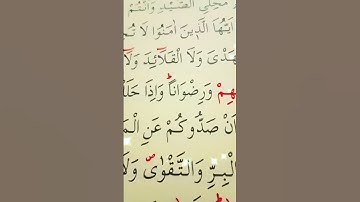 مُحِلِّي الصَّيْدِ وَاَنْتُمْ
اَيُّهَا الَّذ۪ينَ اٰمَنُوا لَا تُحِ
هَدْيَ وَلَا الْقَلَٓائِدَ وَلَٓا
هِمْ وَرِضْوَانًاۜ وَاِذَا حَلَلْ
اَنْ صَدُّوكُمْ عَنِ الْمَ
الْبِرِّ وَالتَّقْوٰىۖ وَلَا